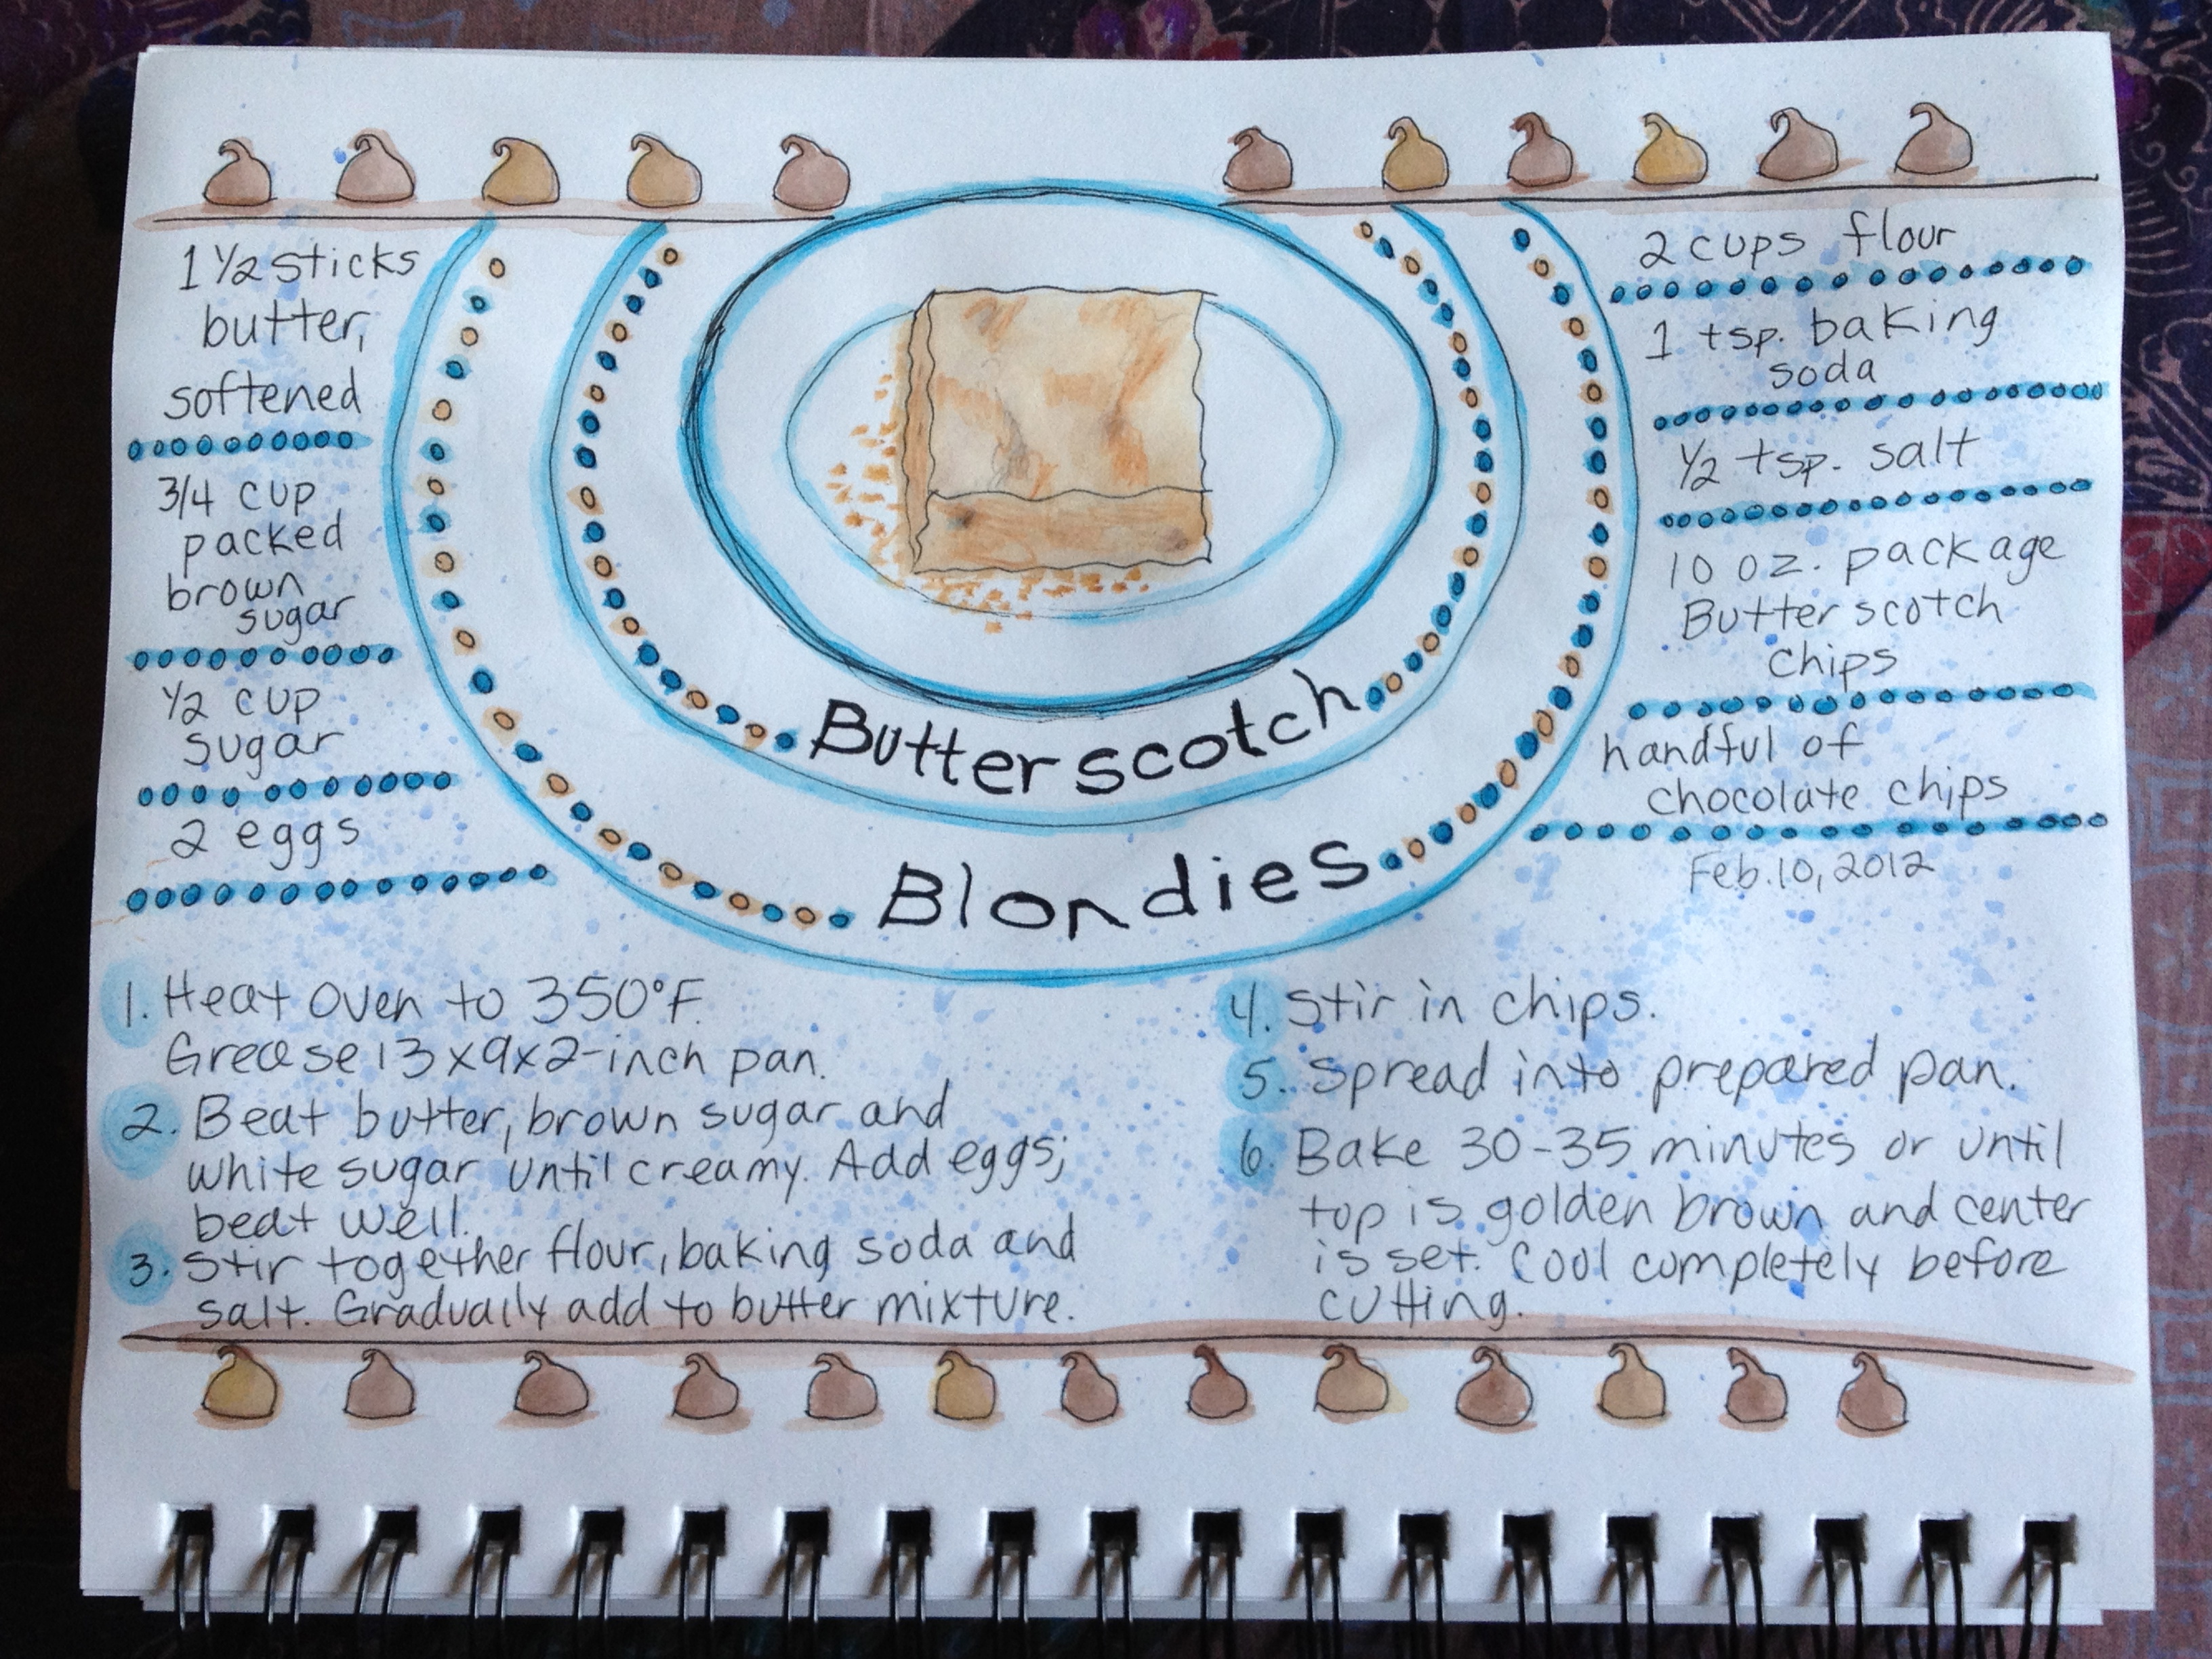 1 1/2 sticks
butter,
softened
3/4 cup
packed
brown
sugar
1/2 cup
sugar
2 eggs
Butterscotch
Blondies
2 cups flour
1 tsp. baking
soda
1/2 tsp. salt
10 oz. package
Butterscotch
chips
handful of
chocolate chips
Feb. 10, 2012
1. Heat oven to 350°F.
Grease 13x9x2-inch pan.
2. Beat butter, brown sugar and
white sugar until creamy. Add eggs;
beat well.
3. Stir together flour, baking soda and
salt. Gradually add to butter mixture.
4. Stir in chips.
5. Spread into prepared pan.
6. Bake 30-35 minutes or until
top is golden brown and center
is set. Cool completely before
cutting.